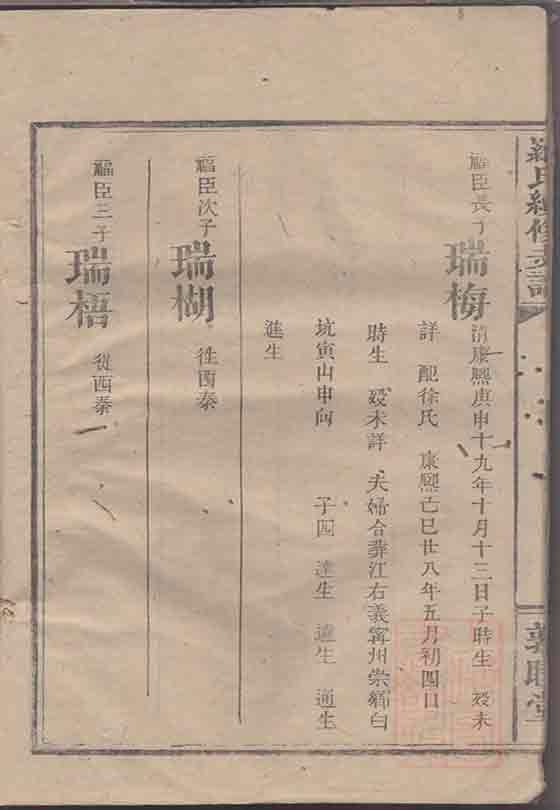 羅氏續修支譜
敦睦堂
福臣長子
瑞梅
清康熙庚申十九年十月十三日子時生 歿未
詳 配徐氏 康熙己巳廿八年五月初四日
時生 歿未詳 夫婦合葬江右義寧州崇鄉白
坑寅山申向 子四 達生 遠生 通生
進生
福臣次子
瑞楜
徃西秦
福臣三子
瑞梧
從西秦